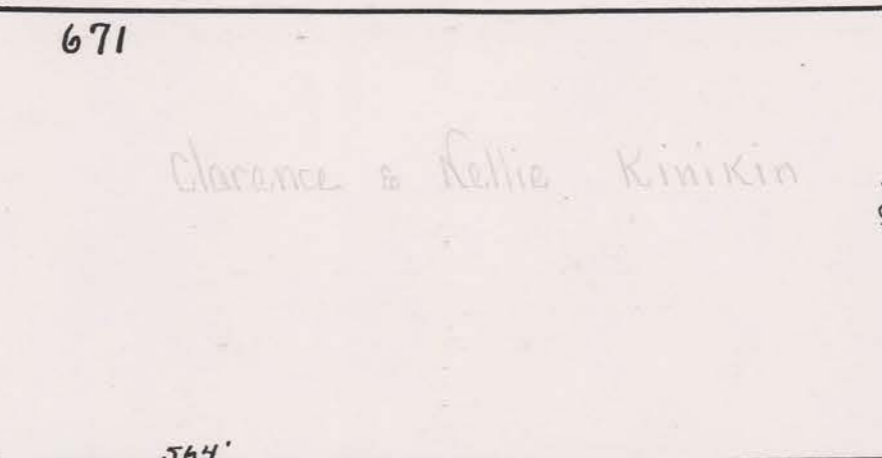 671
Clarance & Nellie Kinikin
564'